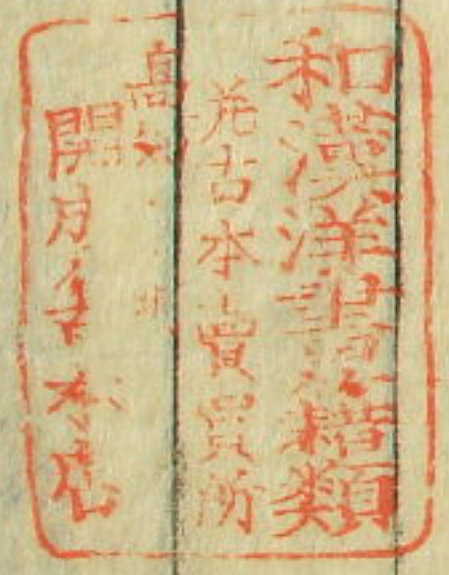 和漢洋書籍類
并古本賣買所
高知
開 本店